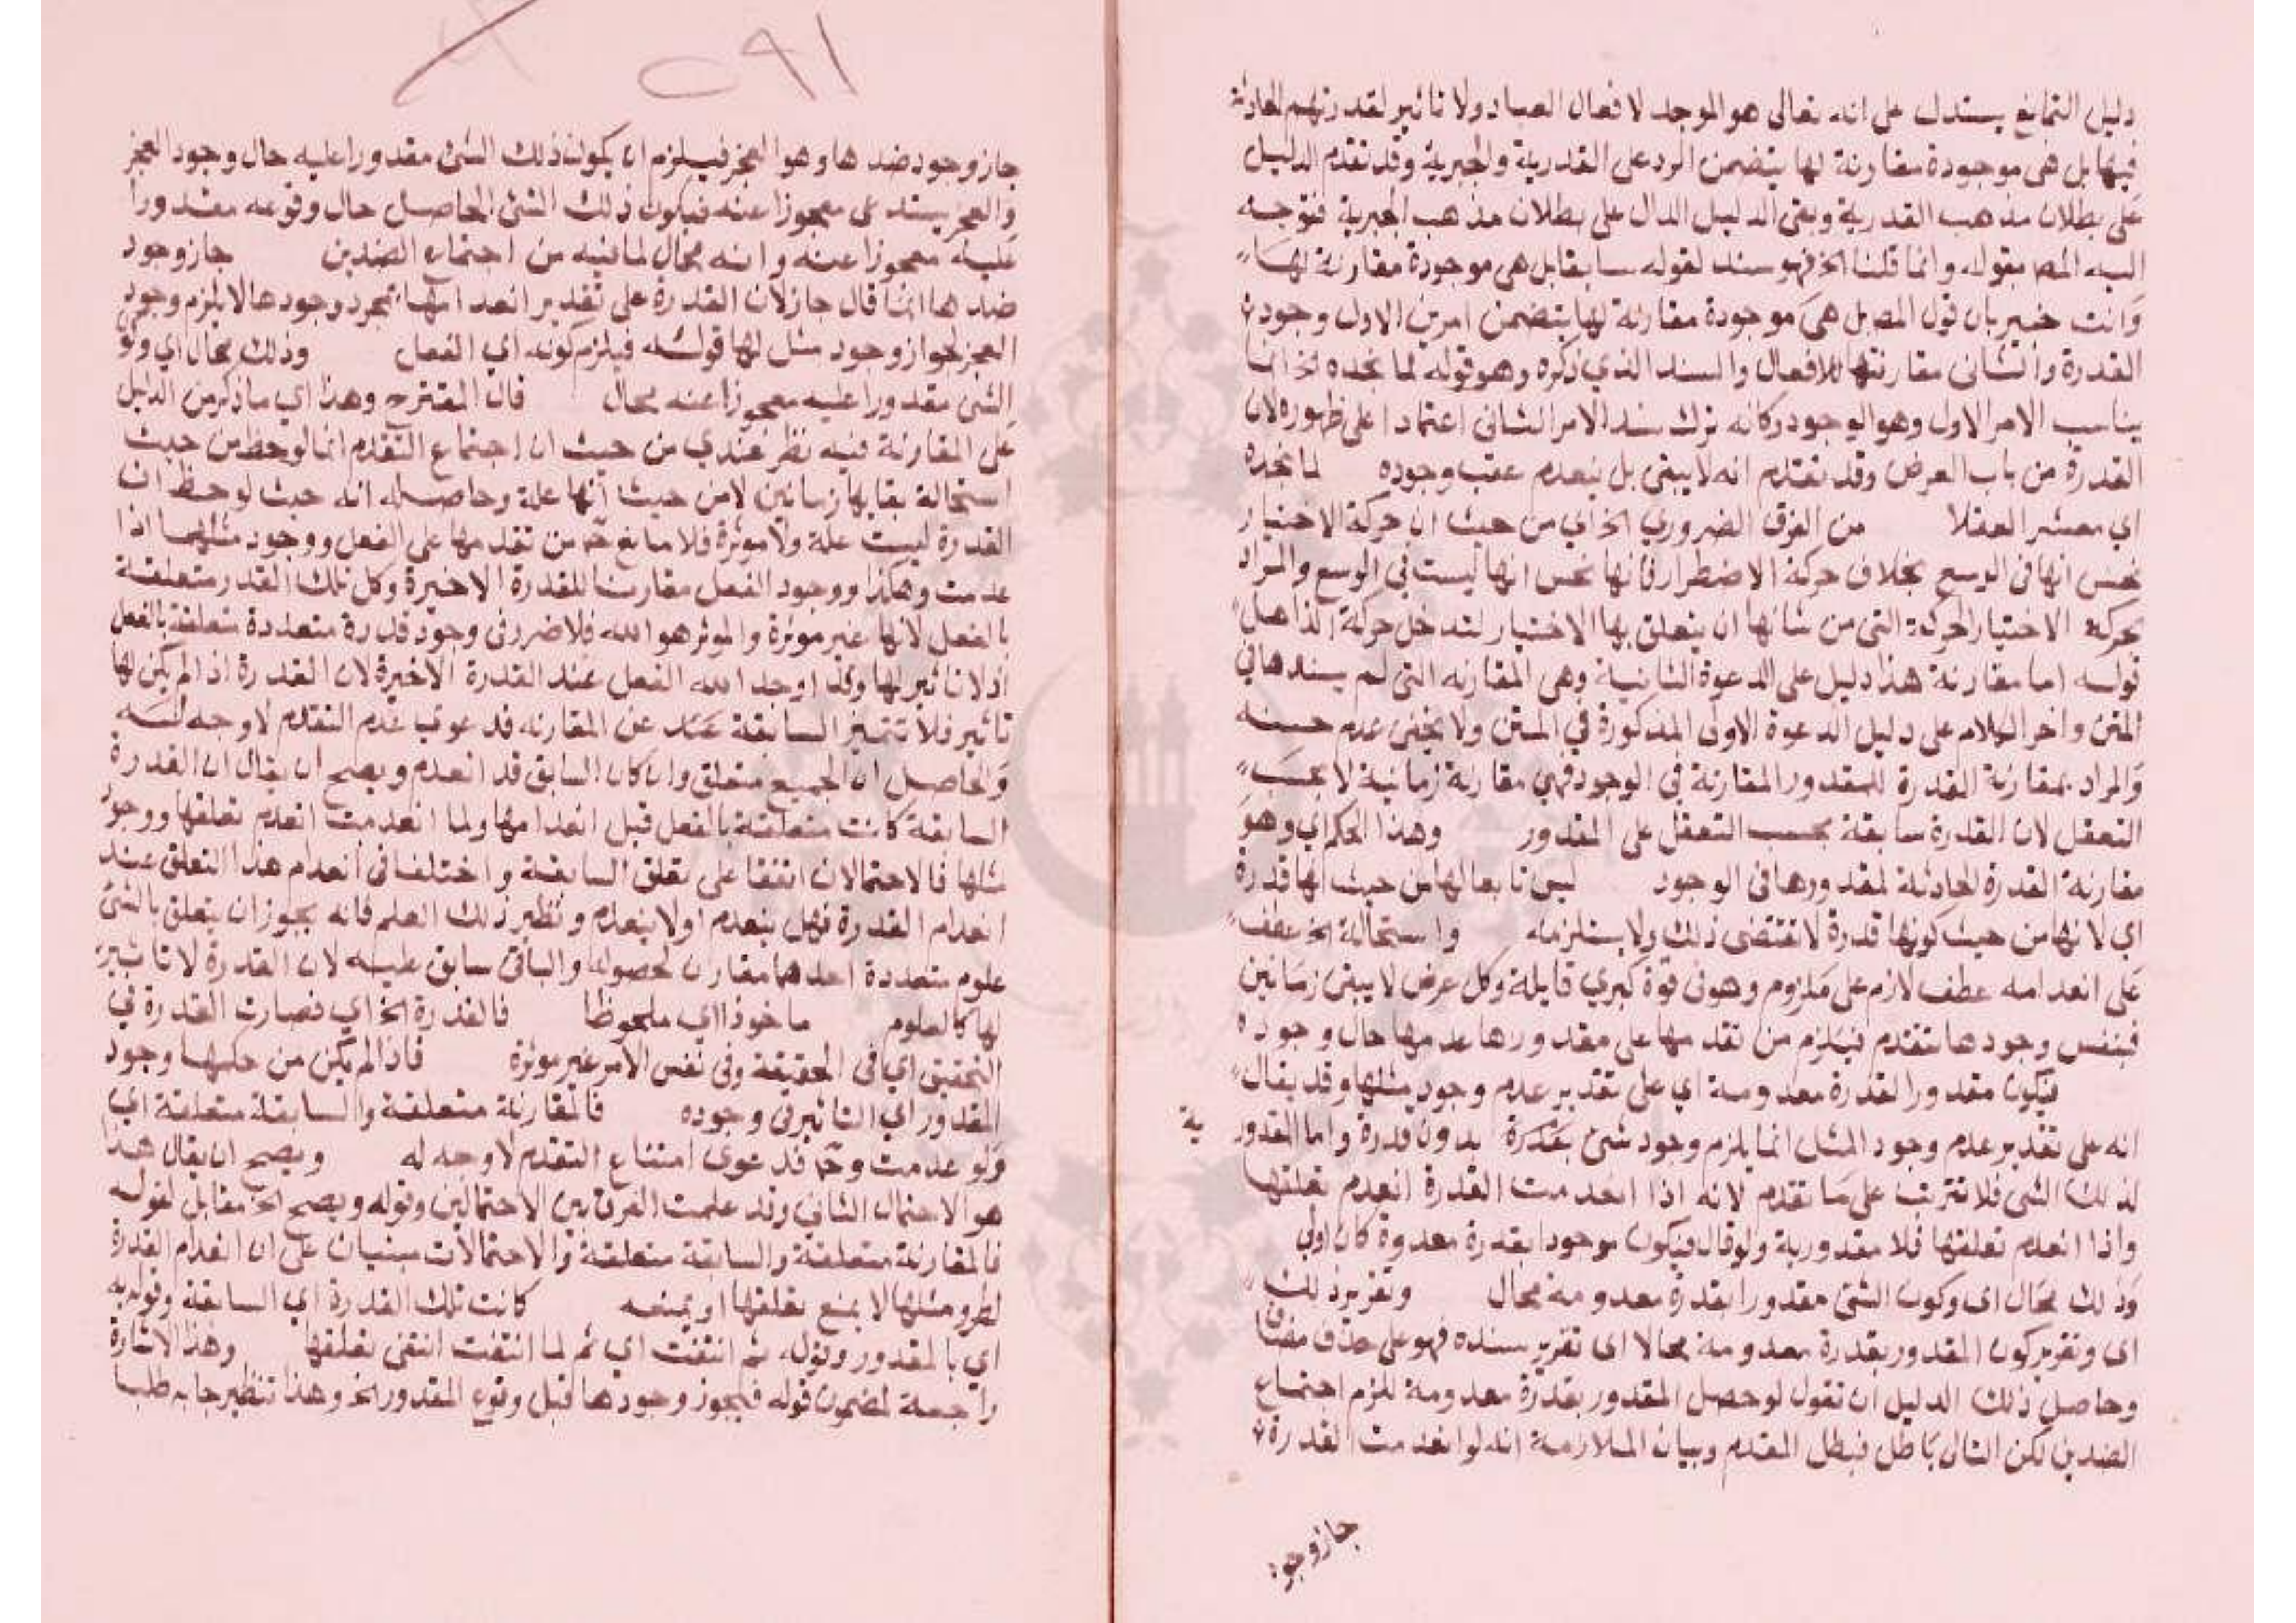 دليل التمانع يستدل على انه تعالى هو الموجد لافعال العباد ولا تاثير لقدرتهم الحادثة
فيها بل هى موجودة مقارنة لها يتضمن الرد على القدرية والجبرية وقد تقدم الدليل
على بطلان مذهب القدرية وبقى الدليل الدال على بطلان مذهب الجبرية فتوجه
اليه المص بقوله وانما قلنا الخ فهو سند لقوله سابقا بل هى موجودة مقارنة لها
وانت خبير بان قول المص بل هى موجودة مقارنة لها يتضمن امرين الاول وجود
القدرة والثانى مقارنتها للافعال والسند الذي ذكره وهو قوله لما نجده الخ انما
يناسب الامر الاول وهو الوجود وكانه ترك سند الامر الثانى اعتمادا على ظهوره لان
القدرة من باب العرض وقد تقدم انه لا يبقى بل ينعدم عقب وجوده لما نجده
اي معشر العقلا من الفرق الضروري الخ اي من حيث ان حركة الاختيار
نحس انها فى الوسع بخلاف حركة الاضطرار فانها نحس انها ليست في الوسع والمراد
بحركة الاختيار الحركة التى من شانها ان يتعلق بها الاختيار لتدخل حركة الذاهل
قوله اما مقارنة هذا دليل على الدعوة الثانية وهى المقارنه التى لم يسندها في
المتن واخر الكلام على دليل الدعوة الاولى المذكورة في المتن ولا يخفى عدم حسنه
والمراد بمقارنة القدرة للمقدور المقارنة في الوجود فهي مقارنة زمانية لا بحسب
التعقل لان القدرة سابقة بحسب التعقل على المقدور وهذا الحكم اي وهو
مقارنة القدرة الحادثة لمقدورها فى الوجود ليس تابعا لها من حيث انها قدرة
اي لانها من حيث كونها قدرة لا تقتضى ذلك ولا يستلزمه واستحالة الخ عطف
على انعدامه عطف لازم على ملزوم وهو فى قوة كبري قايلة وكل عرض لا يبقى زمانين
فبنفس وجودها تنعدم فيلزم من تقدمها على مقدورها عدمها حال وجوده
فيكون مقدورا لقدرة معدومة اي على تقدير عدم وجود مثلها وقد يقال
انه على تقدير عدم وجود المثل انما يلزم وجود شئ بقدرة بدون قدرة واما المقدورية
لذلك الشى فلا تترتب على ما تقدم لانه اذا انعدمت القدرة انعدم تعلقها
واذا انعدم تعلقها فلا مقدورية ولو قال فيكون موجودا بقدرة معدوة كان اولى
وذلك محال اى وكون الشئ مقدورا بقدرة معدومة محال وتقرير ذلك
اى وتقرير كون المقدور بقدرة معدومة محالا اى تقرير سنده فهو على حذف مضاف
وحاصل ذلك الدليل ان تقول لو حصل المقدور بقدرة معدومة للزم اجتماع
الضدين لكن التالى باطل فبطل المقدم وبيان الملازمة انه لو انعدمت القدرة
جاز وجود
٢٩١
جاز وجود ضدها وهو العجز فيلزم ان يكون ذلك الشئ مقدورا عليه حال وجود العجز
والعجز يستدعى معجوزا عنه فيكون ذلك الشئ الحاصل حال وقوعه مقدورا
عليه معجوزا عنه وانه محال لما فيه من اجتماع الضدين جاز وجود
ضدها انما قال جاز لان القدرة على تقدير انعدامها بمجرد وجودها لا يلزم وجود
العجز لجواز وجود مثل لها قوله فيلزم كونه اي الفعل وذلك محال اي وكو
الشئ مقدورا عليه معجوزا عنه محال قال المقترح وهذا اي ما ذكر من الدليل
على المقارنة فيه نظر عندي من حيث ان اجتماع التقدم انما لوحظ من حيث
استحالة بقايها زمانين لا من حيث انها علة وحاصله انه حيث لوحظ ان
القدرة ليست علة ولا موثرة فلا مانع ح من تقدمها على الفعل ووجود مثلها اذا
عدمت وهكذا ووجود الفعل مقارنا للقدرة الاخيرة وكل تلك القدر متعلقة
بالفعل لانها غير موثرة والموثر هو الله فلا ضرر فى وجود قدرة متعددة متعلقة بالفعل
اذ لا تاثير لها وقد اوجد الله الفعل عند القدرة الاخيرة لان القدرة اذا لم يكن لها
تاثير فلا تتميز السابقة عن المقارنه فدعوى عدم التقدم لا وجه له
والحاصل ان الجميع متعلق وان كان السابق قد انعدم ويصح ان يقال ان القدرة
السابقة كانت متعلقة بالفعل قبل انعدامها ولما انعدمت انعدم تعلقها ووجود
مثلها فالاحتمالان اتفقا على تعلق السابقة واختلفا فى انعدام هذا التعلق عند
انعدام القدرة فهل ينعدم اولا ينعدم ونظير ذلك العلم فانه يجوز ان يتعلق بالشئ
علوم متعددة احدهما مقارن لحصوله والباقى سابق عليه لان القدرة لا تاثير
لها كالعلوم ماخوذا اي ملحوظا فالقدرة الخ اي فصارت القدرة في
التحقيق اي فى الحقيقة وفى نفس الامر غير موثرة فاذا لم يكن من حكمها وجود
المقدور اي التاثير فى وجوده فالمقارنة متعلقة والسابقة متعلقة اي
ولو عدمت وح فدعوى امتناع التقدم لا وجه له ويصح ان يقال هذا
هو الاحتمال الثانى وقد علمت الفرق بين الاحتمالين وقوله ويصح الخ مقابل لقوله
فالمقارنة متعلقة والسابقة متعلقة والاحتمالات مبنيان على ان انعدام القدرة
لطرو مثلها لا يمنع تعلقها او يمنعه كانت تلك القدرة اي السابقة وقوله به
اي بالمقدور وقوله ثم انتفت اي ثم لما انتفت انتفى تعلقها وهذا الاشارة
راجعة لمضمون قوله فيجوز وجودها قبل وقوع المقدور الخ وهذا تنظير جا به طلبا